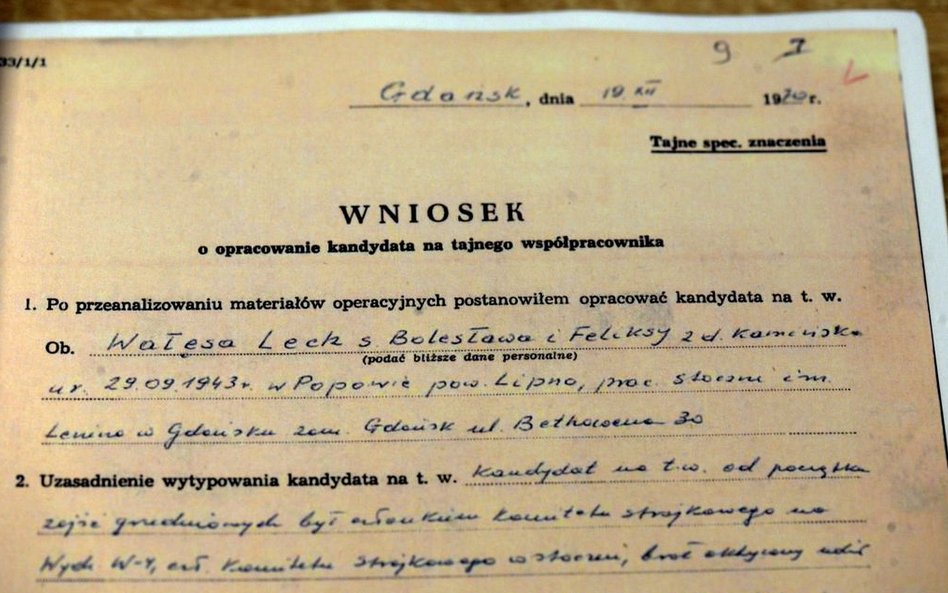 33/1/1
9 7
Gdańsk, dnia 19. XII 1970 r.
Tajne spec. znaczenia
WNIOSEK
o opracowanie kandydata na tajnego współpracownika
1. Po przeanalizowaniu materiałów operacyjnych postanowiłem opracować kandydata na t. w.
Ob. Wałęsa Lech s Bolesława i Feliksy z d. Kamińska
(podać bliższe dane personalne)
ur. 29.09.1943 r. w Popowie pow. Lipno, prac. stoczni im.
Lenina w Gdańsku zam. Gdańsk ul. Bethovena 30
2. Uzasadnienie wytypowania kandydata na t. w. Kandydat na t.w. od początku
zajść grudniowych był członkiem Komitetu strajkowego na
Wydz W-4, czł. Komitetu Strajkowego w stoczni, brał aktywny udział